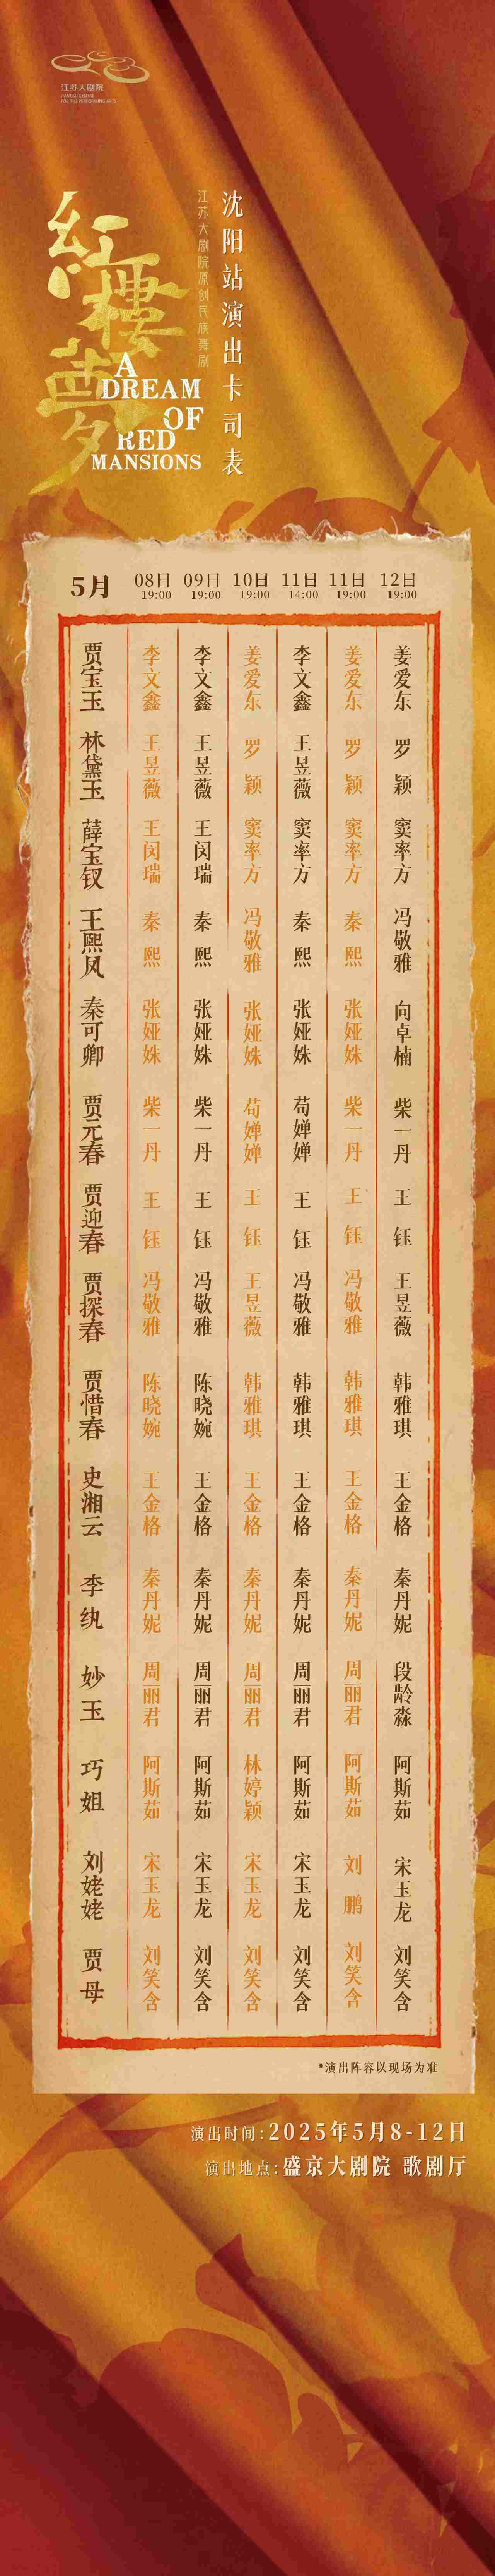 江苏大剧院
JIANGSU CENTRE
FOR THE PERFORMING ARTS
沈阳站演出卡司表
江苏大剧院原创民族舞剧
紅樓夢
A
DREAM
OF
RED
MANSIONS
5月 08日 09日 10日 11日 11日 12日
19:00 19:00 19:00 14:00 19:00 19:00
贾宝玉 李文鑫 李文鑫 姜爱东 李文鑫 姜爱东 姜爱东
林黛玉 王昱薇 王昱薇 罗颖 王昱薇 罗颖 罗颖
薛宝钗 王闵瑞 王闵瑞 窦率方 窦率方 窦率方 窦率方
王熙凤 秦熙 秦熙 冯敬雅 秦熙 秦熙 冯敬雅
秦可卿 张娅姝 张娅姝 张娅姝 张娅姝 张娅姝 向卓楠
贾元春 柴一丹 柴一丹 苟婵婵 苟婵婵 柴一丹 柴一丹
贾迎春 王钰 王钰 王钰 王钰 王钰 王钰
贾探春 冯敬雅 冯敬雅 王昱薇 冯敬雅 冯敬雅 王昱薇
贾惜春 陈晓婉 陈晓婉 韩雅琪 韩雅琪 韩雅琪 韩雅琪
史湘云 王金格 王金格 王金格 王金格 王金格 王金格
李纨 秦丹妮 秦丹妮 秦丹妮 秦丹妮 秦丹妮 秦丹妮
妙玉 周丽君 周丽君 周丽君 周丽君 周丽君 段龄淼
巧姐 阿斯茹 阿斯茹 林婷颖 阿斯茹 阿斯茹 阿斯茹
刘姥姥 宋玉龙 宋玉龙 宋玉龙 宋玉龙 刘鹏 宋玉龙
贾母 刘笑含 刘笑含 刘笑含 刘笑含 刘笑含 刘笑含
*演出阵容以现场为准
演出时间:2025年5月8-12日
演出地点:盛京大剧院 歌剧厅